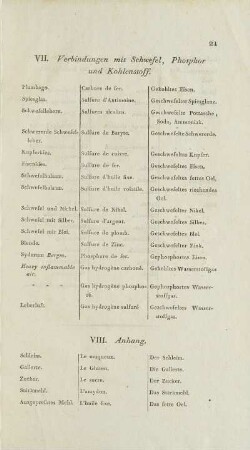 21
VII. Verbindungen mit Schwefel, Phosphor
und Kohlenstoff.
Plumbago. Carbure de fer. Gekohltes Eisen.
Spiesglas. Sulfure d'Antimoine. Geschwefeltes Spiesglanz.
Schwefellebern. Sulfures Geschwefelte Pottasche,
Soda, Ammoniak.
Sulfure de Baryte. Geschwefelte Schwererde.
Kupferkies. Sulfure de cuivre. Geschwefeltes Kupfer.
Sulfure de fer. Geschwefeltes Eisen.
Schwefelbalsam. Sulfure d'huile fixe. Geschwefeltes fettes Oel.
Sulfure d'huile volatile. Geschwefeltes riechendes
Oel.
Schwefel und Nickel. Sulfure de Nikel. Geschwefeltes Nikel.
Schwefel mit Silber. Sulfure d'argent. Geschwefeltes Silber.
Schwefel mit Blei. Sulfure de plomb. Geschwefeltes Blei.
Blende. Sulfure de Zinc. Geschwefeltes Zink.
Hydrurum Bergm. Phosphure de fer. Gephosphortes Eisen.
Heavy inflammable
air. Gaz hydrogène carboné. Gekohltes Wasserstoffgas
Gaz hydrogène phosphoré. Gephosphortes Wasser-
stoffgas.
Leberluft. Gaz hydrogène sulfuré Geschwefeltes Wasser-
stoffgas.
VIII. Anhang.
Schleim. Le muqueux. Der Schleim.
Gallerte. Le Gluten. Die Gallerte.
Zucker. Le sucre. Der Zucker.
Satzmehl. L'amydon. Das Satzmehl.
Ausgepreßtes Oehl. L'huile fixe. Das fette Oel.